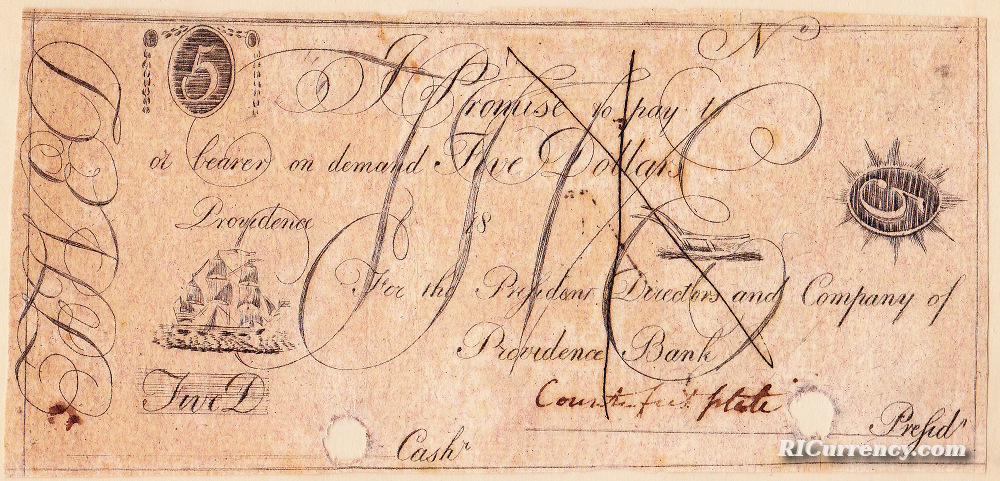 5
Nº
I Promise to pay to
or bearer on demand Five Dollars
5
Providence 18
For the President Directors and Company of
Providence Bank
Counterfeit plate
Five D
Cashr
Presidt
RICurrency.com